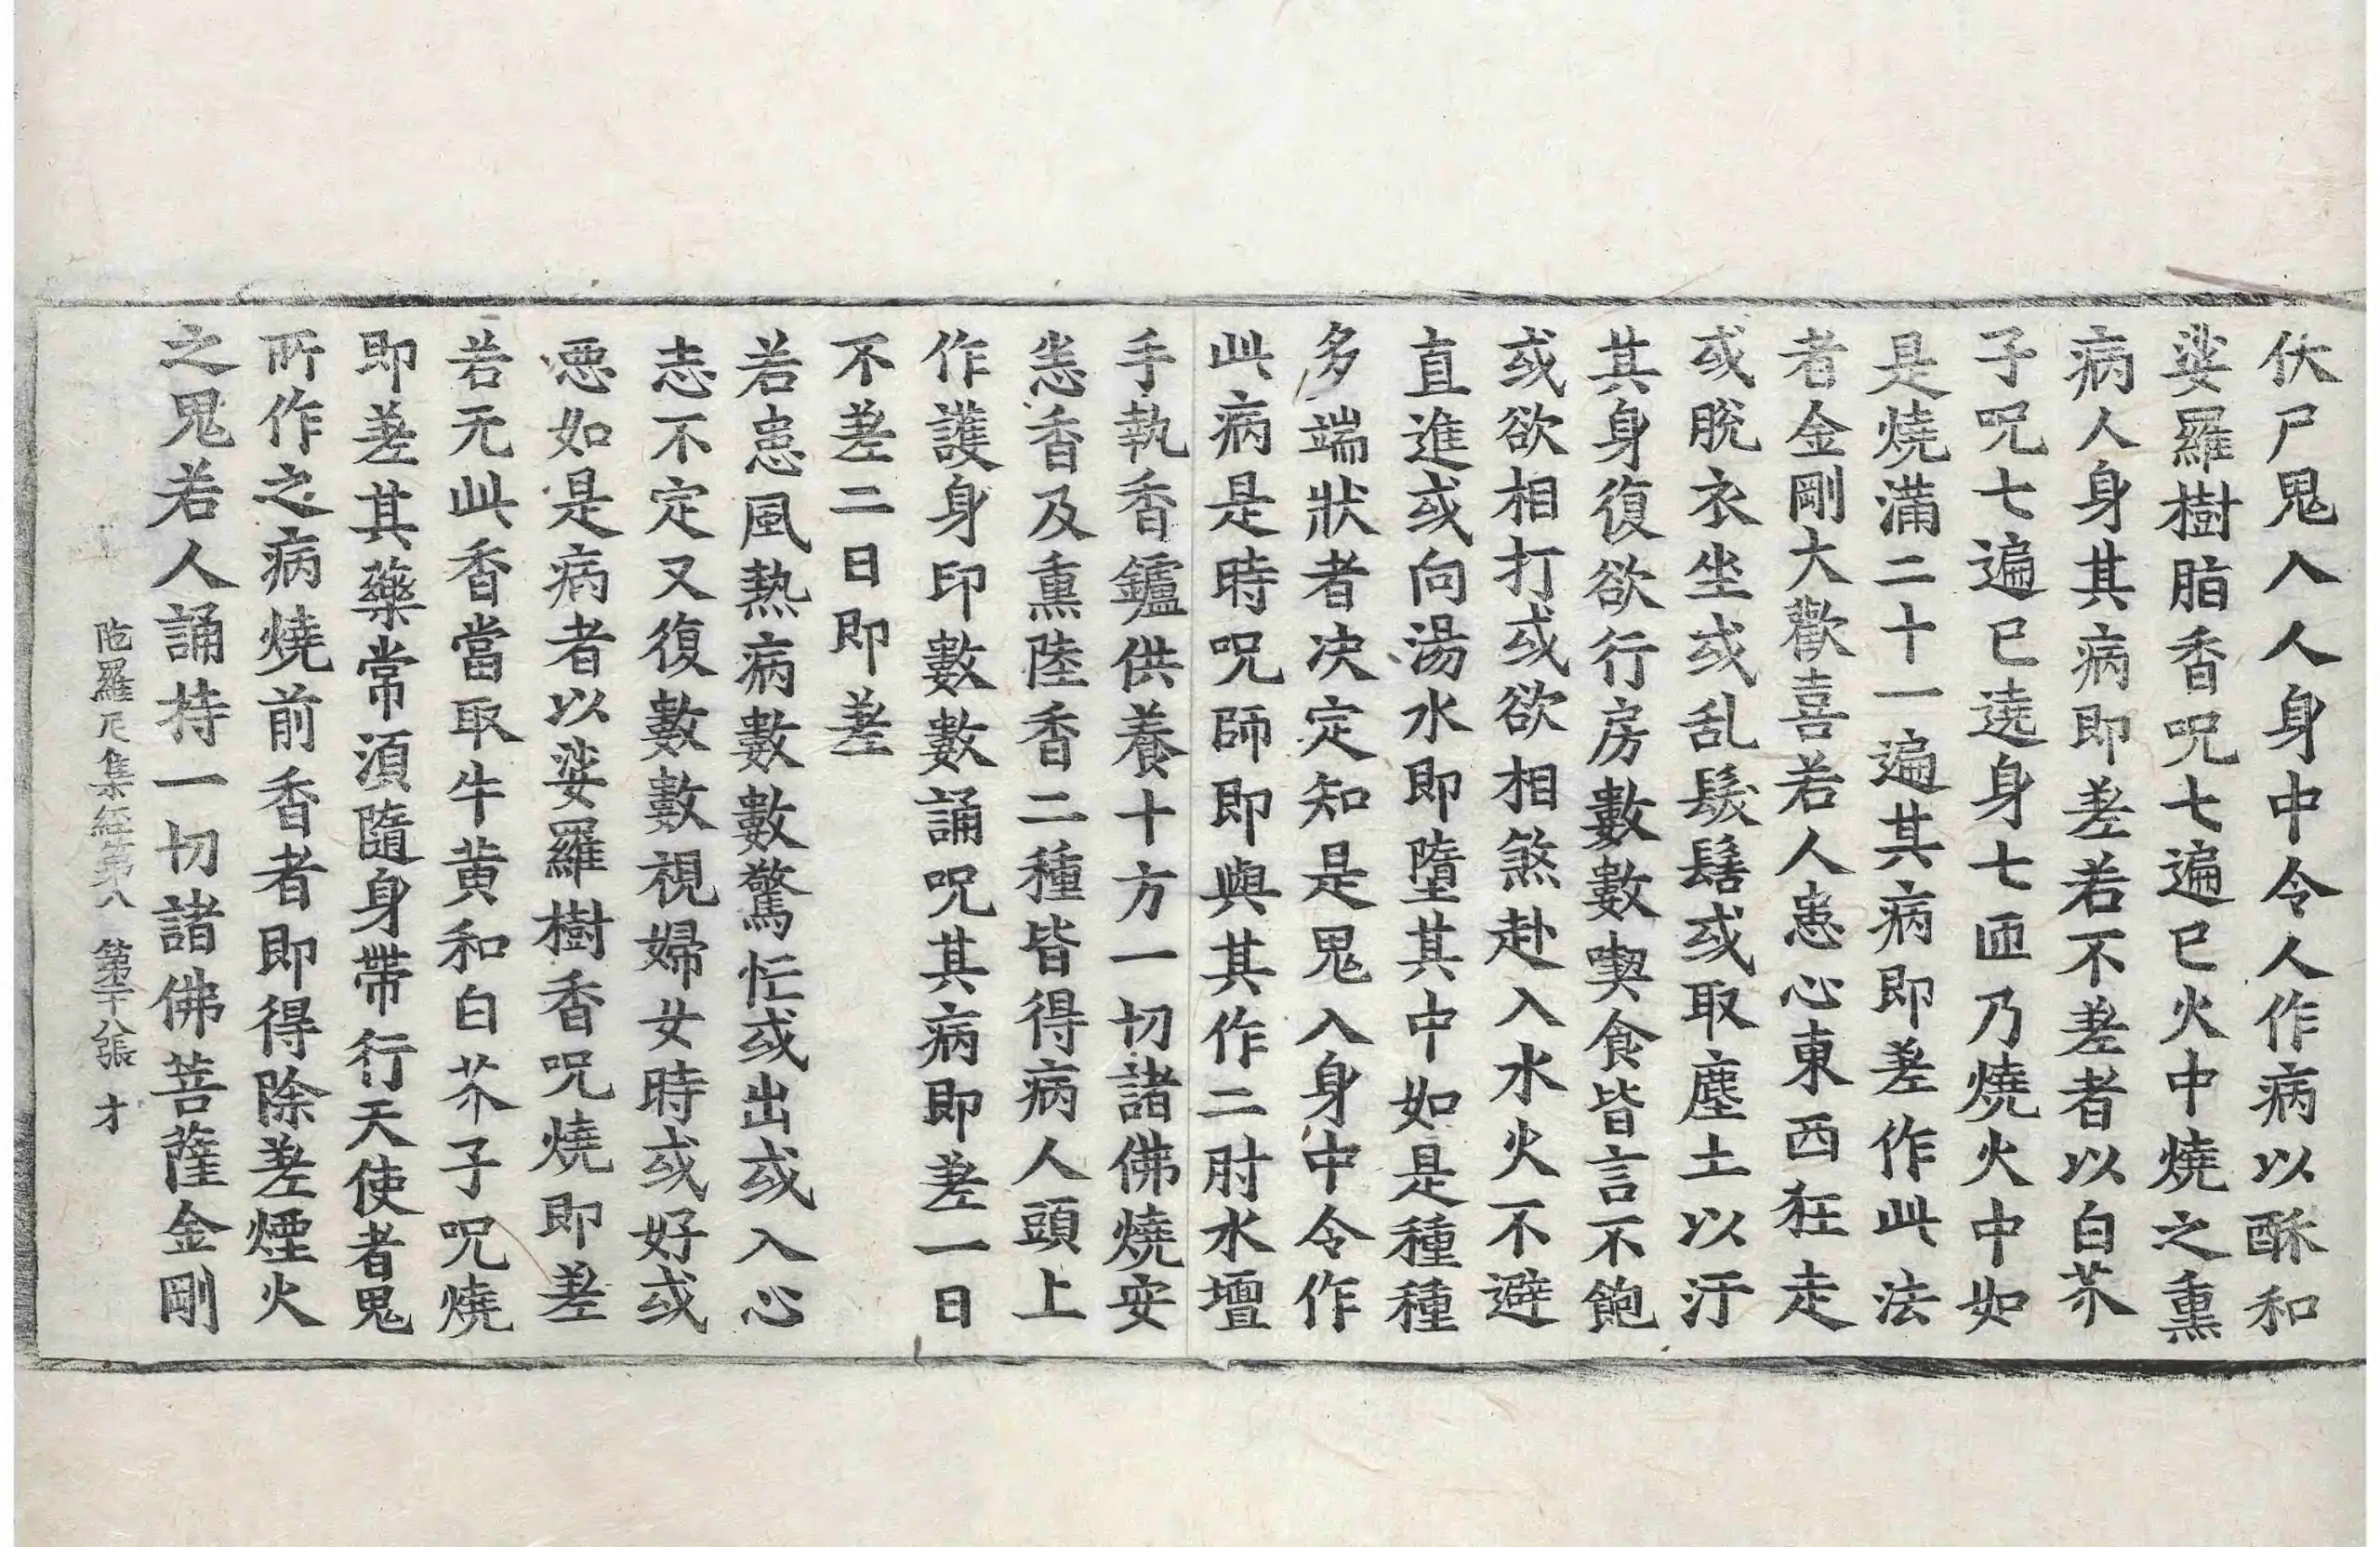 伏尸鬼入人身中令人作病以酥和
娑羅樹脂香呪七遍已火中燒之熏
病人身其病即差若不差者以白芥
子呪七遍已遶身七匝乃燒火中如
是燒滿二十一遍其病即差作此法
者金剛大歡喜若人患心東西狂走
或脫衣坐或乱髮髻或取塵土以汙
其身復欲行房數數喫食皆言不飽
或欲相打或欲相煞赴入水火不避
直進或向湯水即墮其中如是種種
多端狀者决定知是鬼入身中令作
此病是時呪師即與其作二肘水壇
手執香鑪供養十方一切諸佛燒安
悉香及熏陸香二種皆得病人頭上
作護身印數數誦呪其病即差一日
不差二日即差
若患風熱病數數驚忙或出或入心
志不定又復數數視婦女時或好或
惡如是病者以娑羅樹香呪燒即差
若无此香當取牛黃和白芥子呪燒
即差其藥常須隨身帶行天使者鬼
所作之病燒前香者即得除差煙火
之鬼若人誦持一切諸佛菩薩金剛
陁羅尼集經第八 第二十八張 才